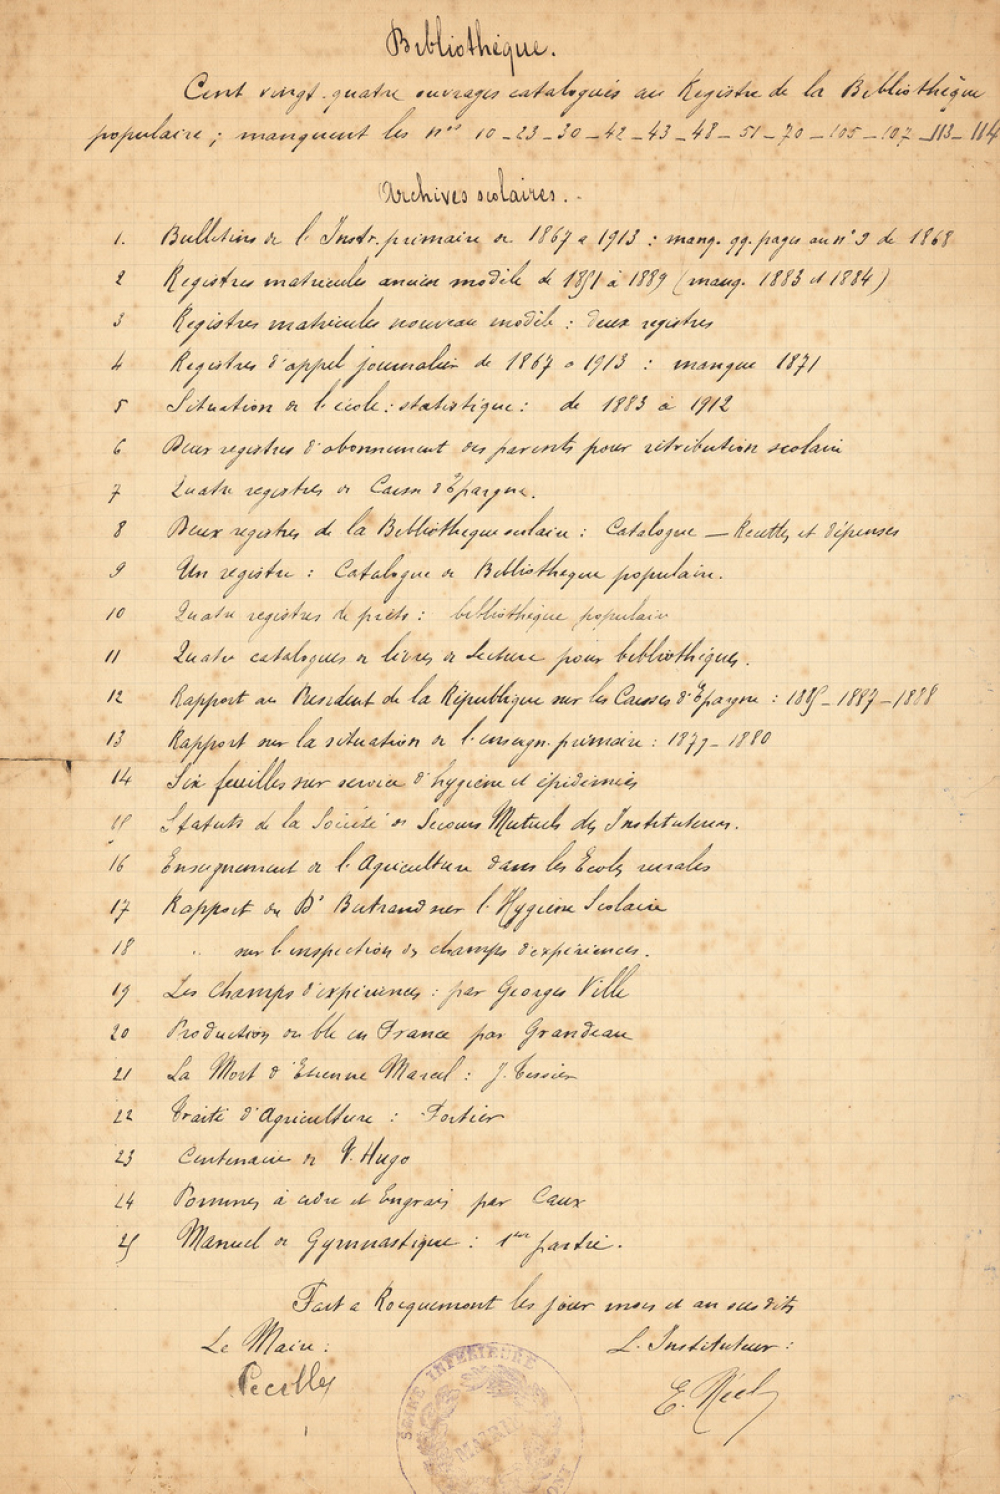 Bibliothèque.
Cent vingt-quatre ouvrages catalogués au Registre de la Bibliothèque
populaire ; manquent les nos 10 - 23 - 30 - 42 - 43 - 48 - 51 - 70 - 105 - 107 - 113 - 114
Archives scolaires.
1. Bulletins de l'Instr. primaire de 1867 à 1913 : manq. qq. pages au n° 9 de 1868
2 Registres matricules ancien modèle de 1851 à 1889 (manq. 1883 et 1884)
3 Registres matricules nouveau modèle : deux registres
4 Registres d'appel journalier de 1867 à 1913 : manque 1871
5 Situation de l'école : statistique : de 1883 à 1912
6 Deux registres d'abonnement des parents pour rétribution scolaire
7 Quatre registres de Caisse d'Épargne.
8 Deux registres de la Bibliothèque scolaire : Catalogue — Recettes et dépenses
9 Un registre : Catalogue de Bibliothèque populaire.
10 Quatre registres de prêts : bibliothèque populaire
11 Quatre catalogues de livres de lecture pour bibliothèques.
12 Rapport au Président de la République sur les Caisses d'Épargne : 1885 - 1887 - 1888
13 Rapport sur la situation de l'enseign. primaire : 1879 - 1880
14 Six feuilles sur service d'hygiène et épidémies
15 Statuts de la Société de Secours Mutuels des Instituteurs.
16 Enseignement de l'Agriculture dans les Écoles rurales
17 Rapport du Dr Bertrand sur l'Hygiène Scolaire
18 " sur l'inspection des champs d'expériences.
19 Les champs d'expériences : par Georges Ville
20 Production du blé en France par Grandeau
21 La Mort d'Etienne Marcel : J. Tessier
22 Traité d'Agriculture : Fortier
23 Centenaire de V. Hugo
24 Pommes à cidre et Engrais par Caux
25 Manuel de Gymnastique : 1ère partie.
Fait à Rocquemont les jour mois et an susdits
Le Maire : L'Instituteur :
E.
SEINE INFÉRIEURE
MAIRIE